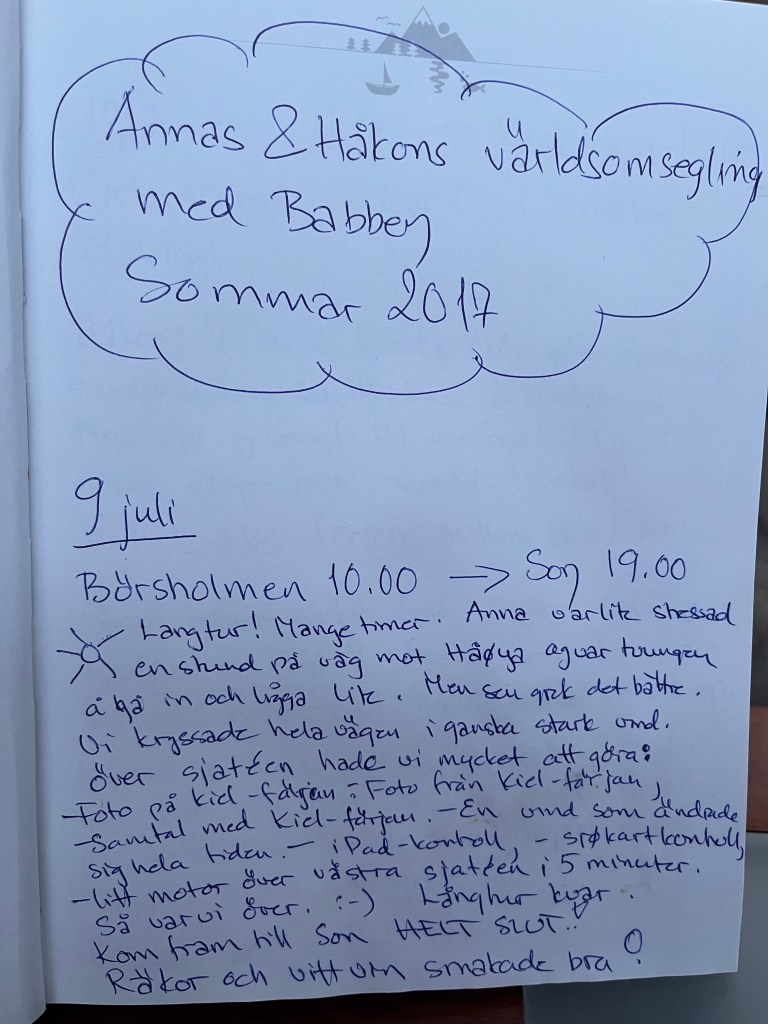 Annas & Håkons världsomsegling
med Babben
Sommar 2017
9 juli
Börsholmen 10.00 → Son 19.00
Langtur! Mange timer. Anna var litt stressad
en stund på väg mot Håøya og var tvungen
å gå in och ligga litt. Men sen gick det bättre.
Vi kryssade hela vägen i ganska stark vind.
Över sjatéen hade vi mycket att göra:
- Foto på Kiel-färjan - Foto från Kiel-färjan,
- Samtal med Kiel-färjan. - En vind som ändrade
sig hela tiden. - iPad-kontroll, - sjøkartkontroll,
- litt motor över västra sjatéen i 5 minuter.
Så var vi över. :-) Långtur kvar.
Kom fram till Son HELT SLUT!!
Räkor och vitt vin smakade bra!